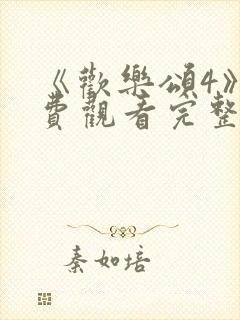 《歡樂頌4》
費觀看完整
秦如培